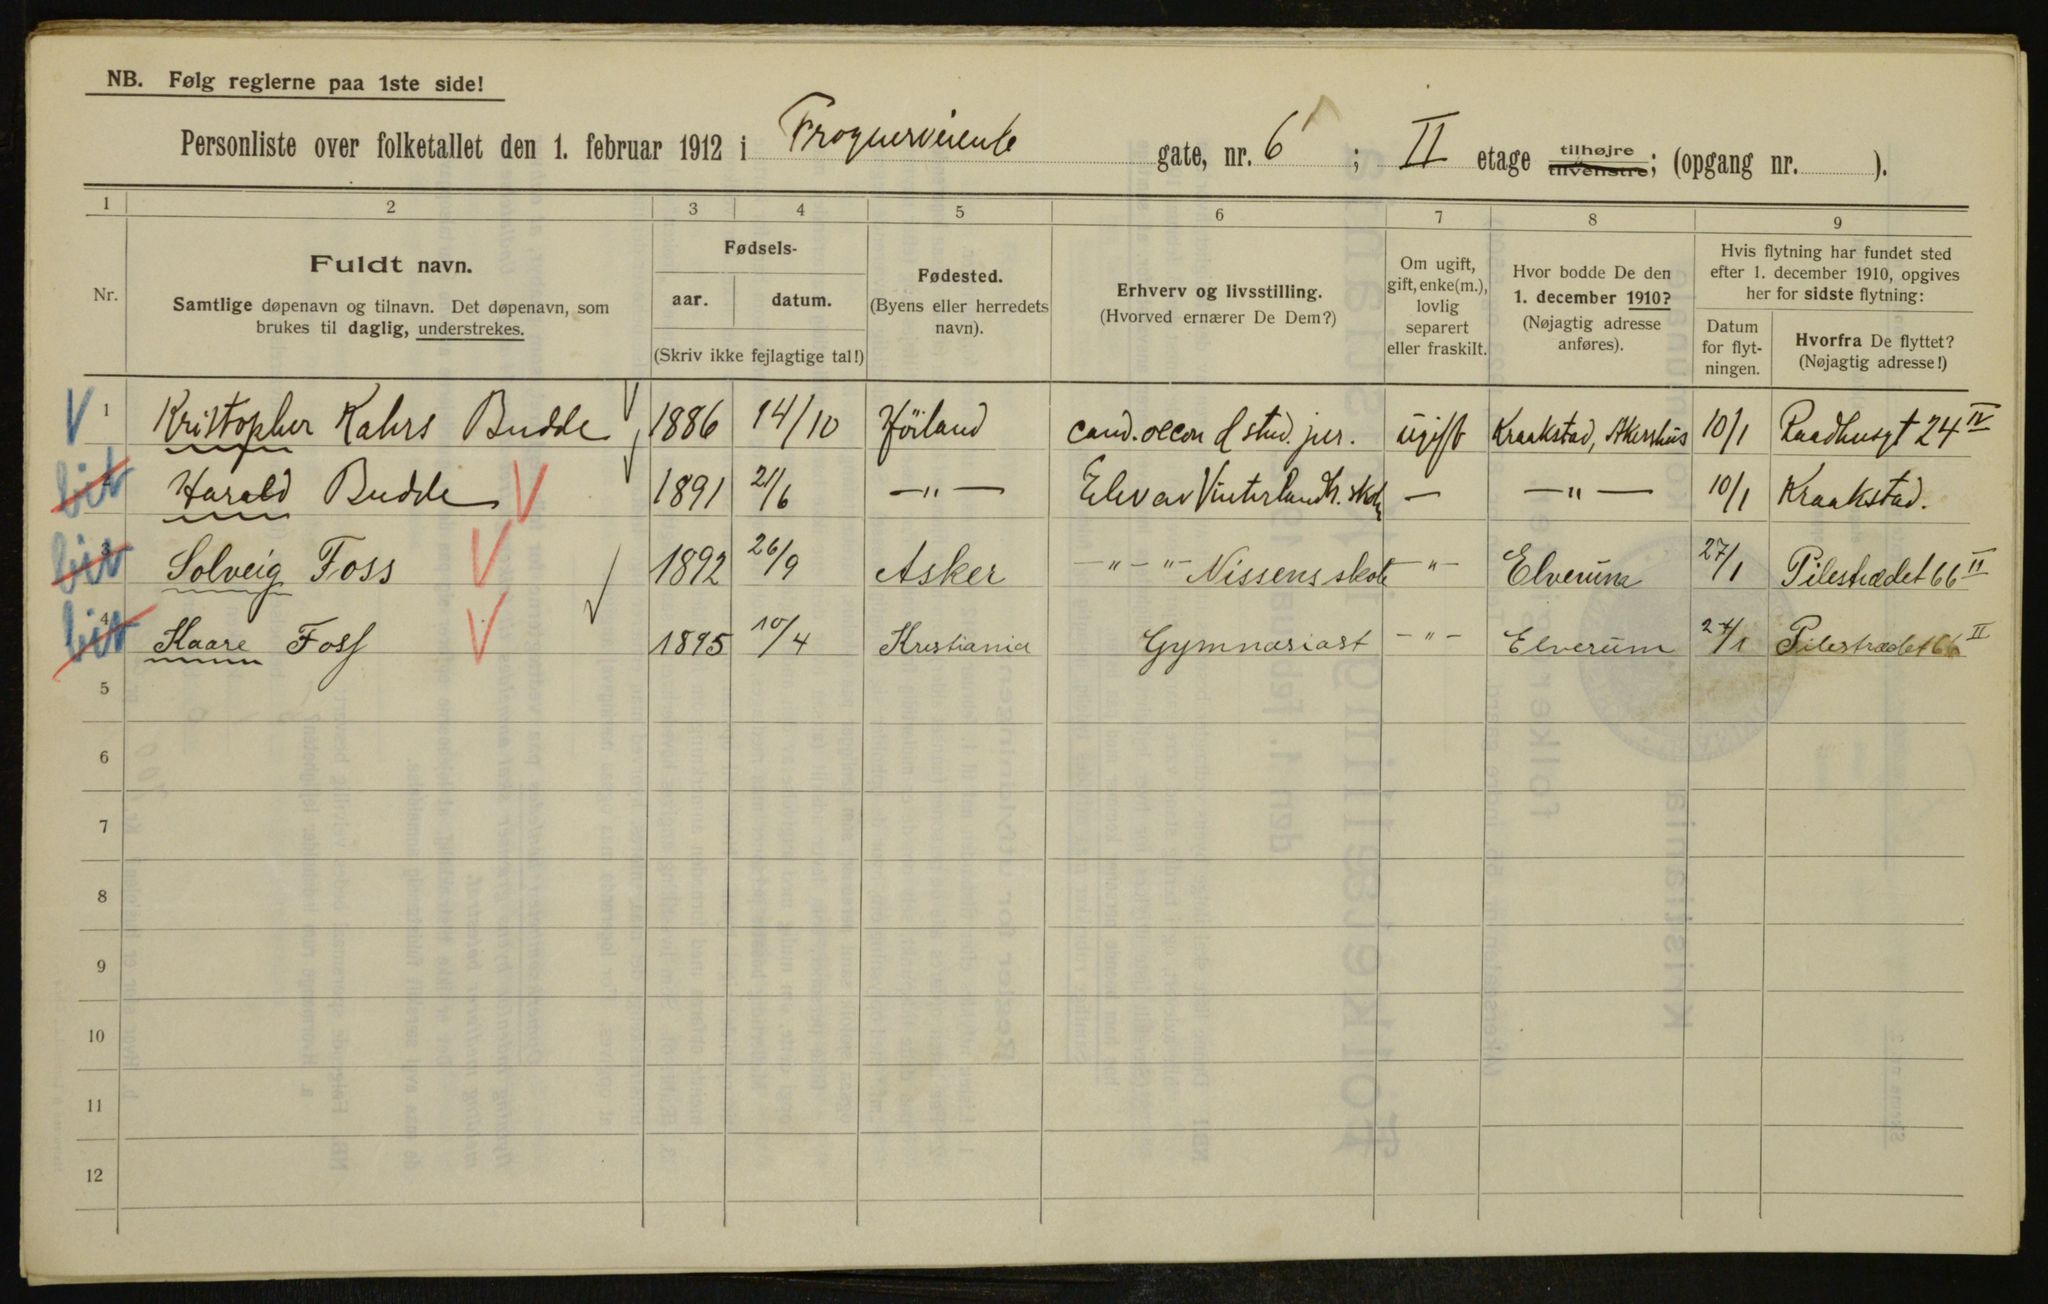 NB. Følg reglerne paa 1ste side!
Personliste over folketallet den 1. februar 1912 i Frognerveien gate, nr. 6 ; II etage tilhøjre tilvenstre; (opgang nr. ).
1 2 3 4 5 6 7 8 9
Nr.
Fuldt navn.
Samtlige døpenavn og tilnavn. Det døpenavn, som
brukes til daglig, understrekes.
Fødsels-
aar. datum.
(Skriv ikke fejlagtige tal!)
Fødested.
(Byens eller herredets
navn).
Erhverv og livsstilling.
(Hvorved ernærer De Dem?)
Om ugift,
gift, enke(m.),
lovlig
separert
eller fraskilt.
Hvor bodde De den
1. december 1910?
(Nøjagtig adresse
anføres).
Hvis flytning har fundet sted
efter 1. december 1910, opgives
her for sidste flytning:
Datum
for flyt-
ningen.
Hvorfra De flyttet?
(Nøjagtig adresse!)
1 Kristopher Kahrs Budde 1886 14/10 Høiland cand. oecon & stud. jur. ugift Kraakstad, Akershus 10/1 Raadhusgt 24 IV
2 Harald Budde 1891 21/6 —"— Elev av Vinterlandbr. skole — —"— 10/1 Kraakstad.
3 Solveig Foss 1892 26/9 Asker —"—"— Nissens skole —"— Elverum 27/1 Pilestrædet 66 II
4 Kaare Foss 1895 10/4 Kristiania Gymnasiast —"— Elverum 27/1 Pilestrædet 66 II
5
6
7
8
9
10
11
12